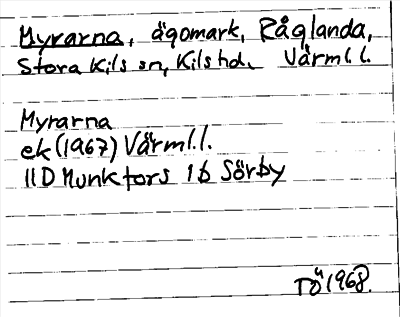 Myrarna, ägomark, Råglanda,
Stora Kils sn, Kils hd. Värml.l.
Myrarna
ek (1967) Värml.l.
11D Munkfors 1b Sörby
TÖ 1968.